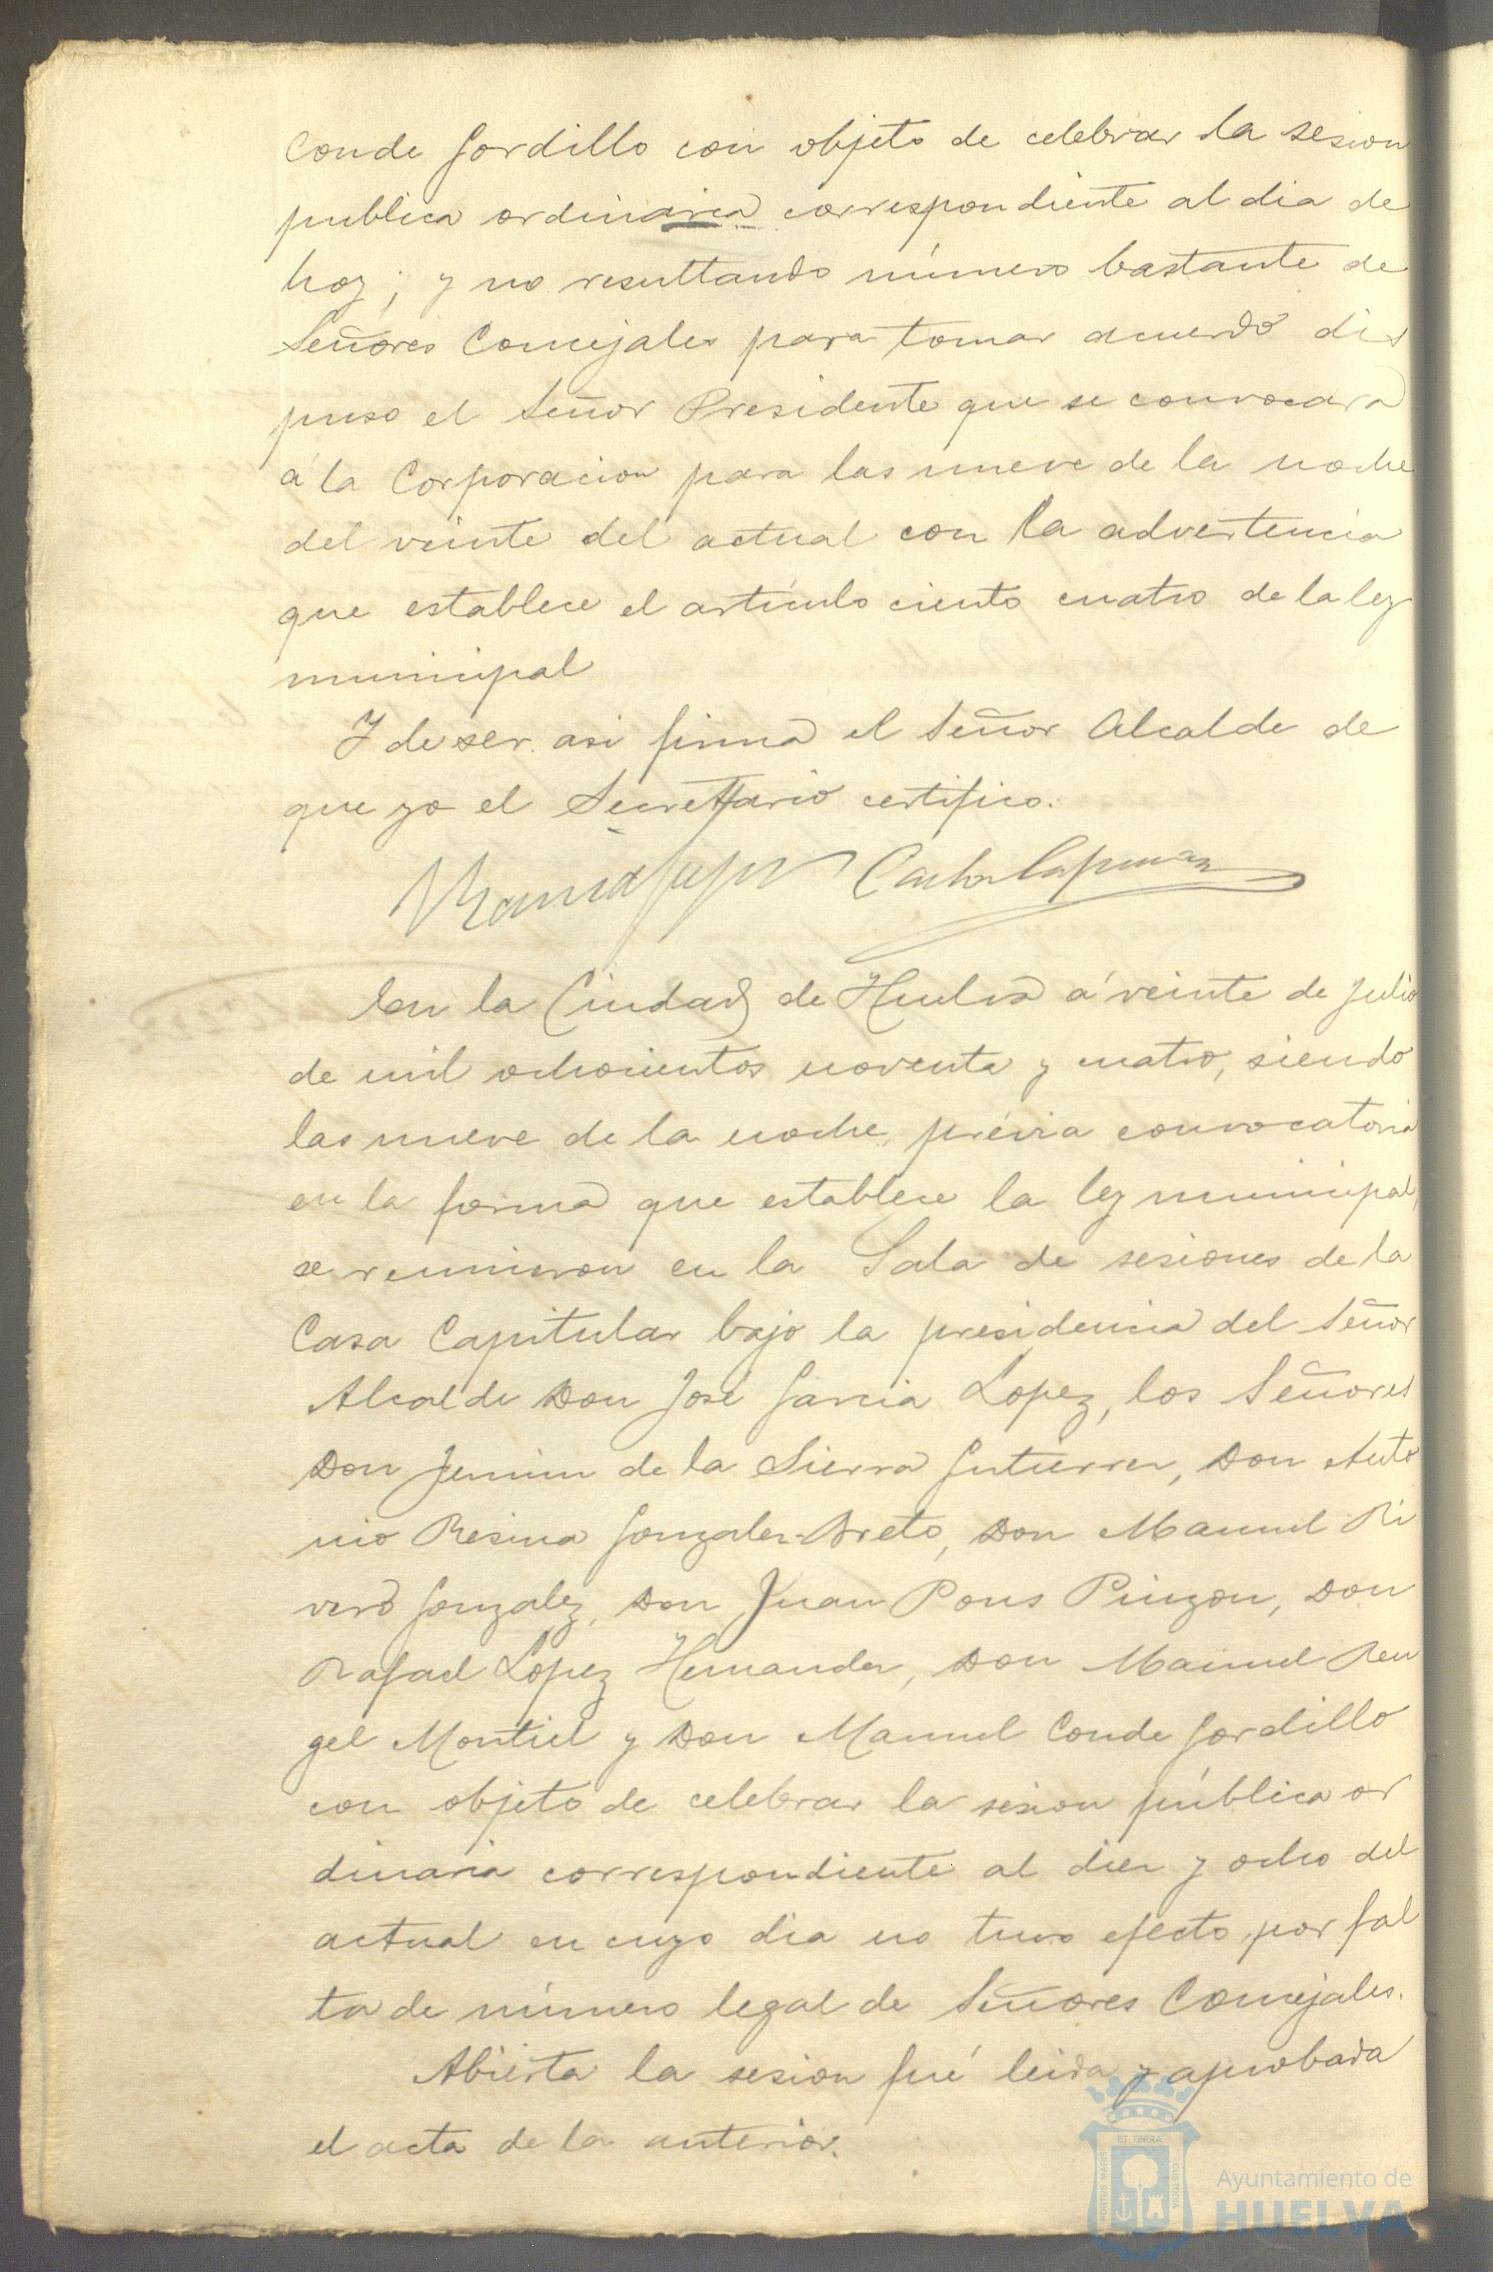 Conde Gordillo con objeto de celebrar la sesion
publica ordinaria correspondiente al dia de
hoy; y no resultando número bastante de
Señores Concejales para tomar acuerdo dis
puso el Señor Presidente que se convocara
á la Corporacion para las nueve de la noche
del veinte del actual con la advertencia
que establece el artículo ciento cuatro de la ley
municipal
Y de ser asi firma el Señor Alcalde de
que yo el Secretario certifico.
En la Ciudad de Huelva á veinte de Julio
de mil ochocientos noventa y cuatro, siendo
las nueve de la noche, prévia convocatoria
en la forma que establece la ley municipal,
se reunieron en la Sala de sesiones de la
Casa Capitular bajo la presidencia del Señor
Alcalde Don José Garcia Lopez, los Señores
Don de la Sierra Gutierrez, Don Anto
nio Resina Gonzalez-Breto, Don Manuel Ri
vero Gonzalez, Don Juan Pons Pinzon, Don
Rafael Lopez Hernandez, Don Manuel Ren
gel Montiel y Don Manuel Conde Gordillo
con objeto de celebrar la sesion pública or
dinaria correspondiente al diez y ocho del
actual en cuyo dia no tuvo efecto por fal
ta de número legal de Señores Concejales.
Abierta la sesion fué leida y aprobada
el acta de la anterior.
PORTUS MARIS
ET TERRÆ
CUSTODIA
Ayuntamiento de
HUELVA